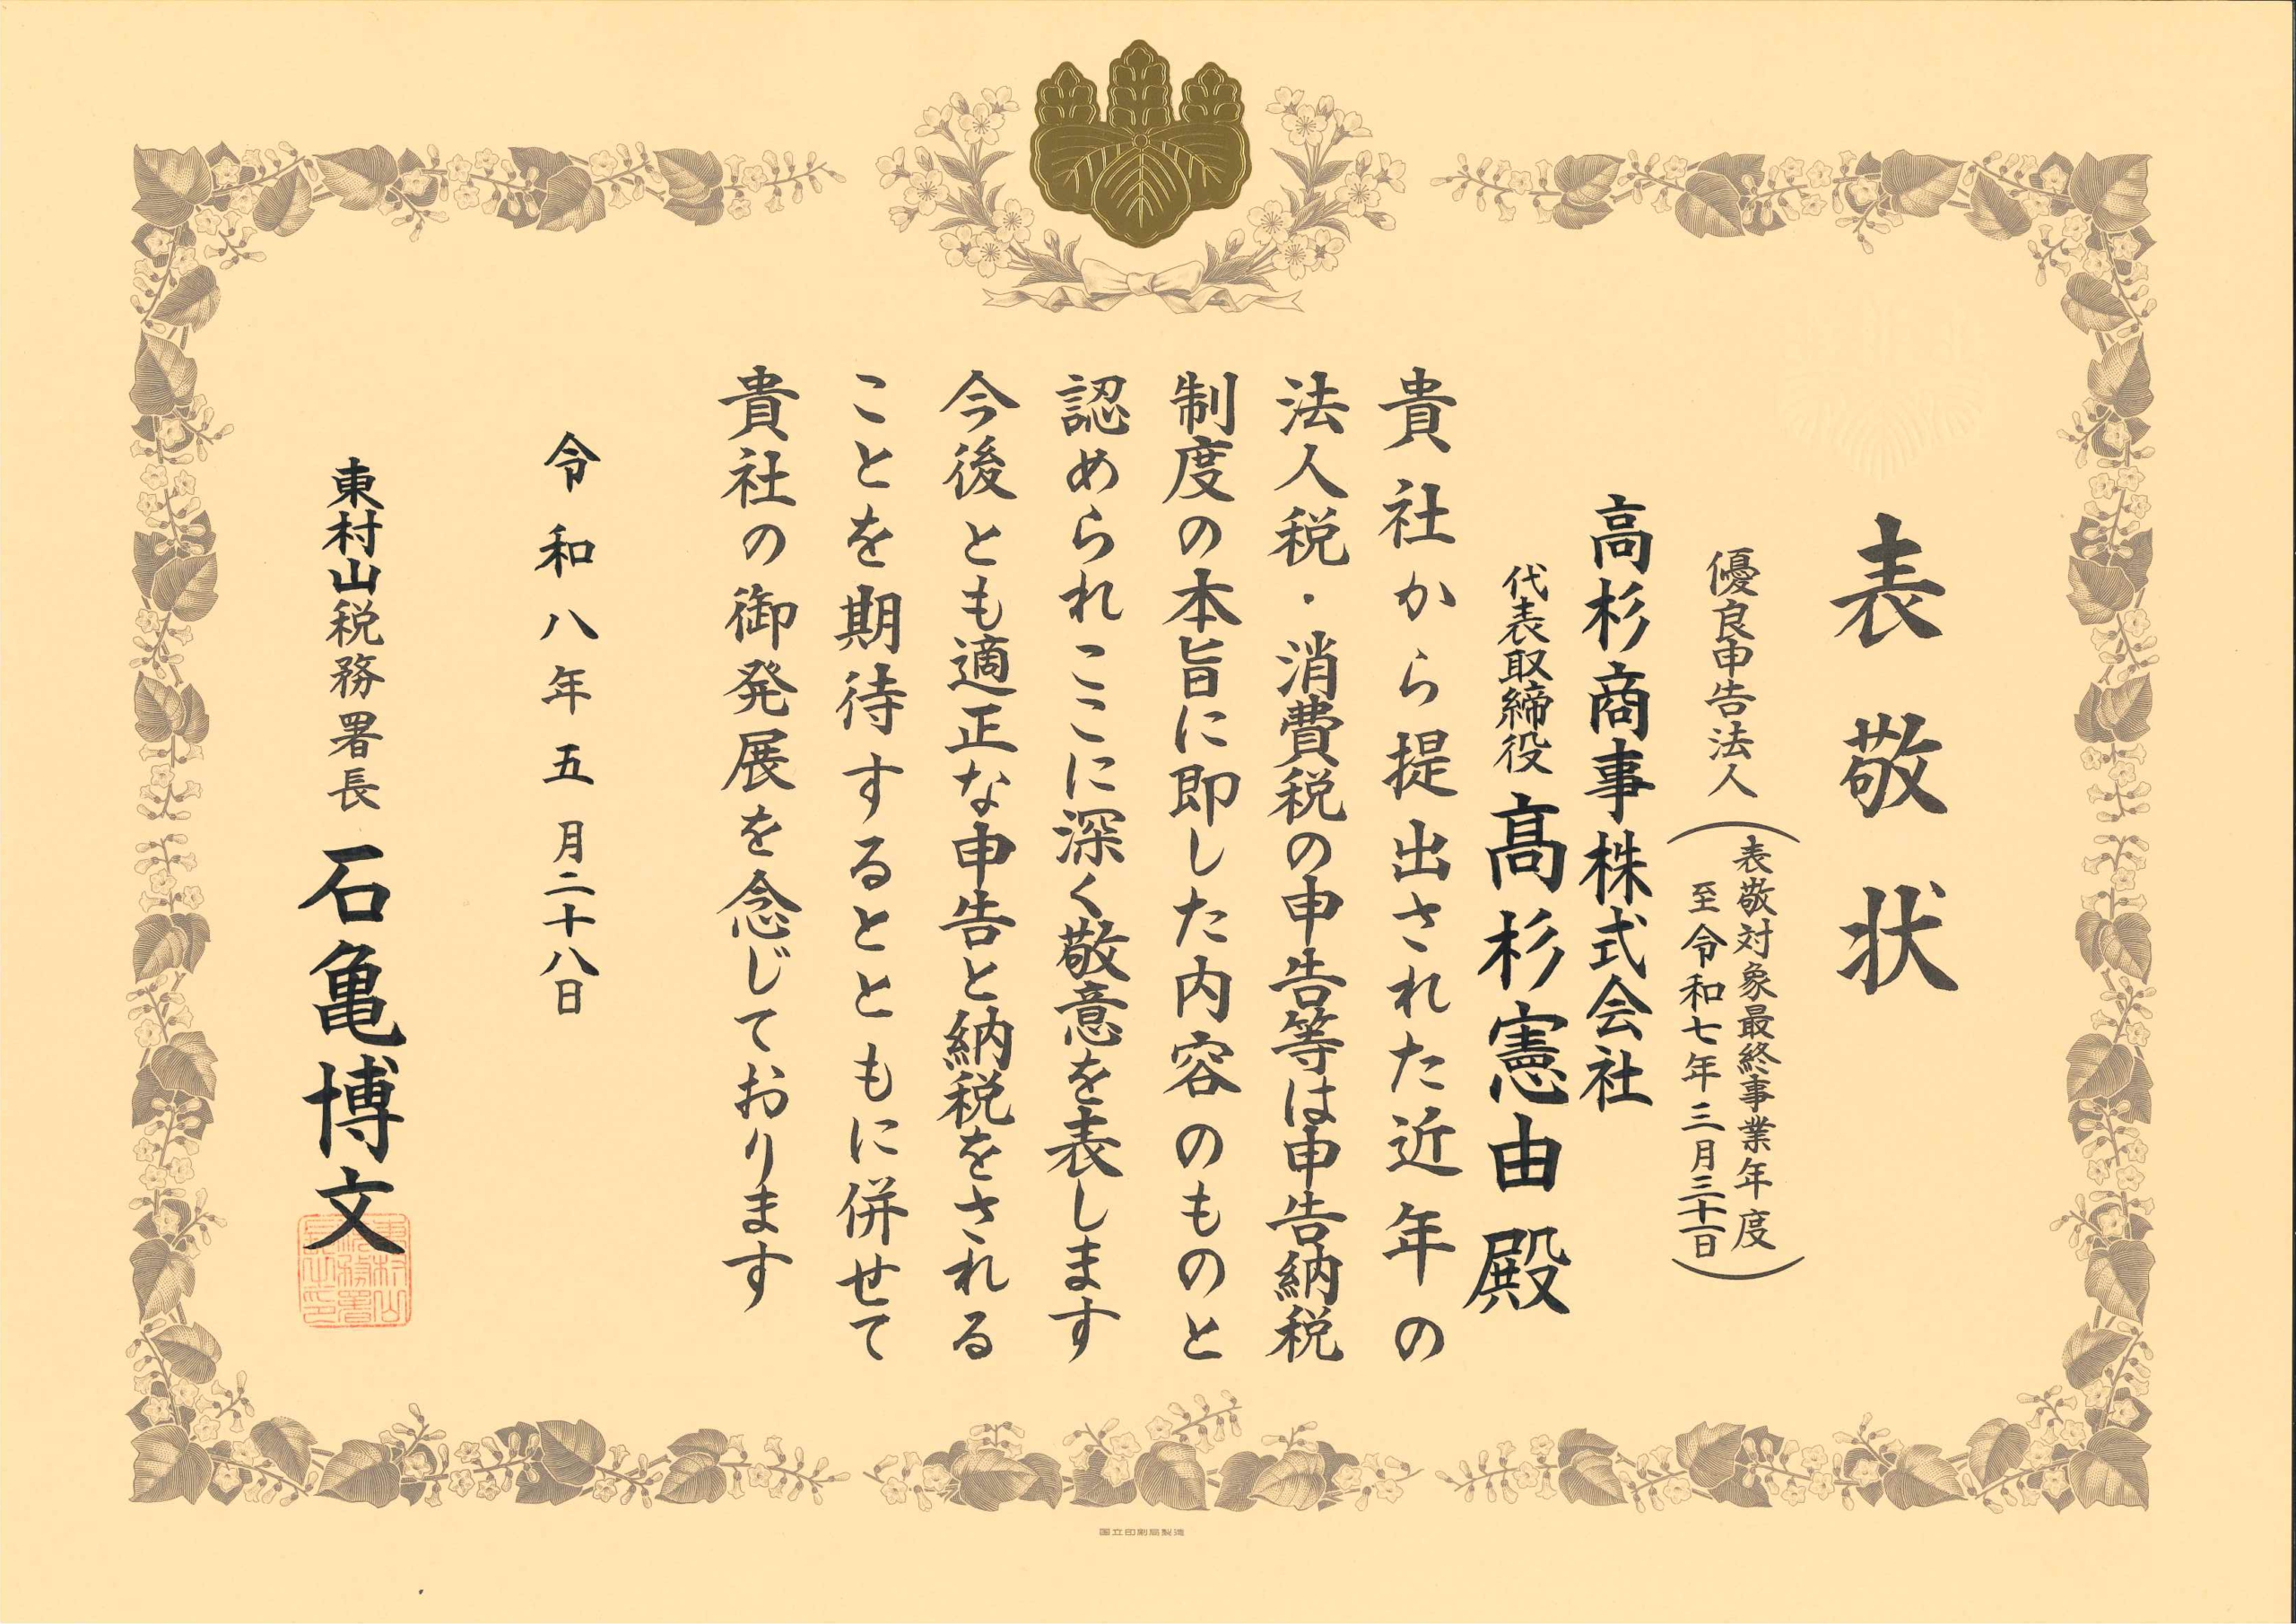 表敬状
優良申告法人
(表敬対象最終事業年度
至令和七年三月三十一日)
高杉商事株式会社
代表取締役 髙杉憲由殿
貴社から提出された近年の
法人税・消費税の申告等は申告納税
制度の本旨に即した内容のものと
認められここに深く敬意を表します
今後とも適正な申告と納税をされる
ことを期待するとともに併せて
貴社の御発展を念じております
令和八年五月二十八日
東村山税務署長 石亀博文
東村山
税務署
長之印
国立印刷局製造